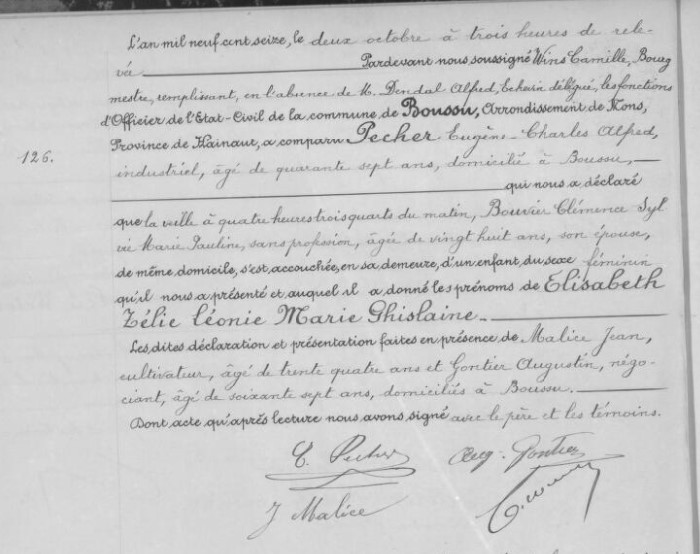 L'an mil neuf cent seize, le deux octobre à trois heures de rele-
vée Pardevant nous soussigné Wins Camille, Bourg
mestre, remplissant, en l'absence de M. Dendal Alfred, Echevin délégué, les fonctions
d'Officier de l'Etat-Civil de la commune de Boussu, Arrondissement de Mons,
126.
Province de Hainaut, a comparu Pecher Eugène-Charles Alfred,
industriel, âgé de quarante sept ans, domicilié à Boussu,
qui nous a déclaré
que la veille à quatre heures trois quarts du matin, Bouvier Clémence Syl
vie Marie Pauline, sans profession, âgée de vingt huit ans, son épouse,
de même domicile, s'est accouchée, en sa demeure, d'un enfant du sexe féminin
qu'il nous a présenté et auquel il a donné les prénoms de Elisabeth
Zélie Léonie Marie Ghislaine.
Les dites déclaration et présentation faites en présence de Malice Jean,
cultivateur, âgé de trente quatre ans et Gontier Augustin, négo-
ciant, âgé de soixante sept ans, domiciliés à Boussu.
Dont acte qu'après lecture nous avons signé avec le père et les témoins.
E. Pecher Aug. Gontier
J Malice